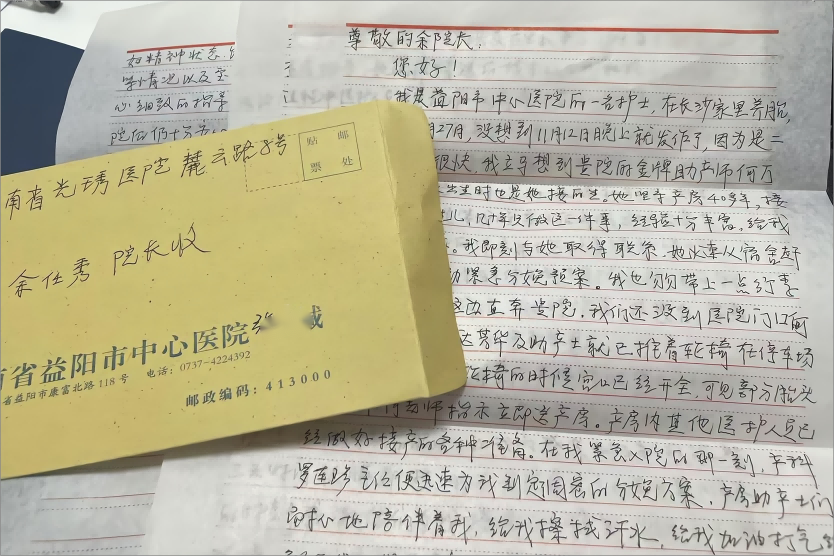 如精神状态
学情况以及
心细致的指导
院后仍十分
尊敬的余院长：
您好！
我是益阳市中心医院的一名护士，在长沙家里养胎，
月27月，没想到11月12日晚上就发作了，因为是二
很快，我立马想到贵院的金牌助产师何万
生时也是她接的生。她呆产房40多年，接
几十年只做这一件事，经验十分丰富，给我
。我即刻与她取得联系，她火速从宿舍赶
紧急分娩预案。我也匆匆带上一点行李
边直奔贵院，我们还没到医院门口何
芳华及助产士就已推着轮椅在停车场
的时候宫口已经开全，可见部分胎头
师指示立即送产房。产房内其他医护人员已
经做好接产的各种准备。在我紧急入院的那一刻，产科
罗 主任便迅速为我制定周密的分娩方案，产房助产士们
心地陪伴着我，给我擦拭汗水，给我加油打气
贴 邮
票 处
南省光琇医院麓云路8号
余仕秀 院长收
省益阳市中心医院
省益阳市康富北路118号 电话：0737-4224392
邮政编码：413000